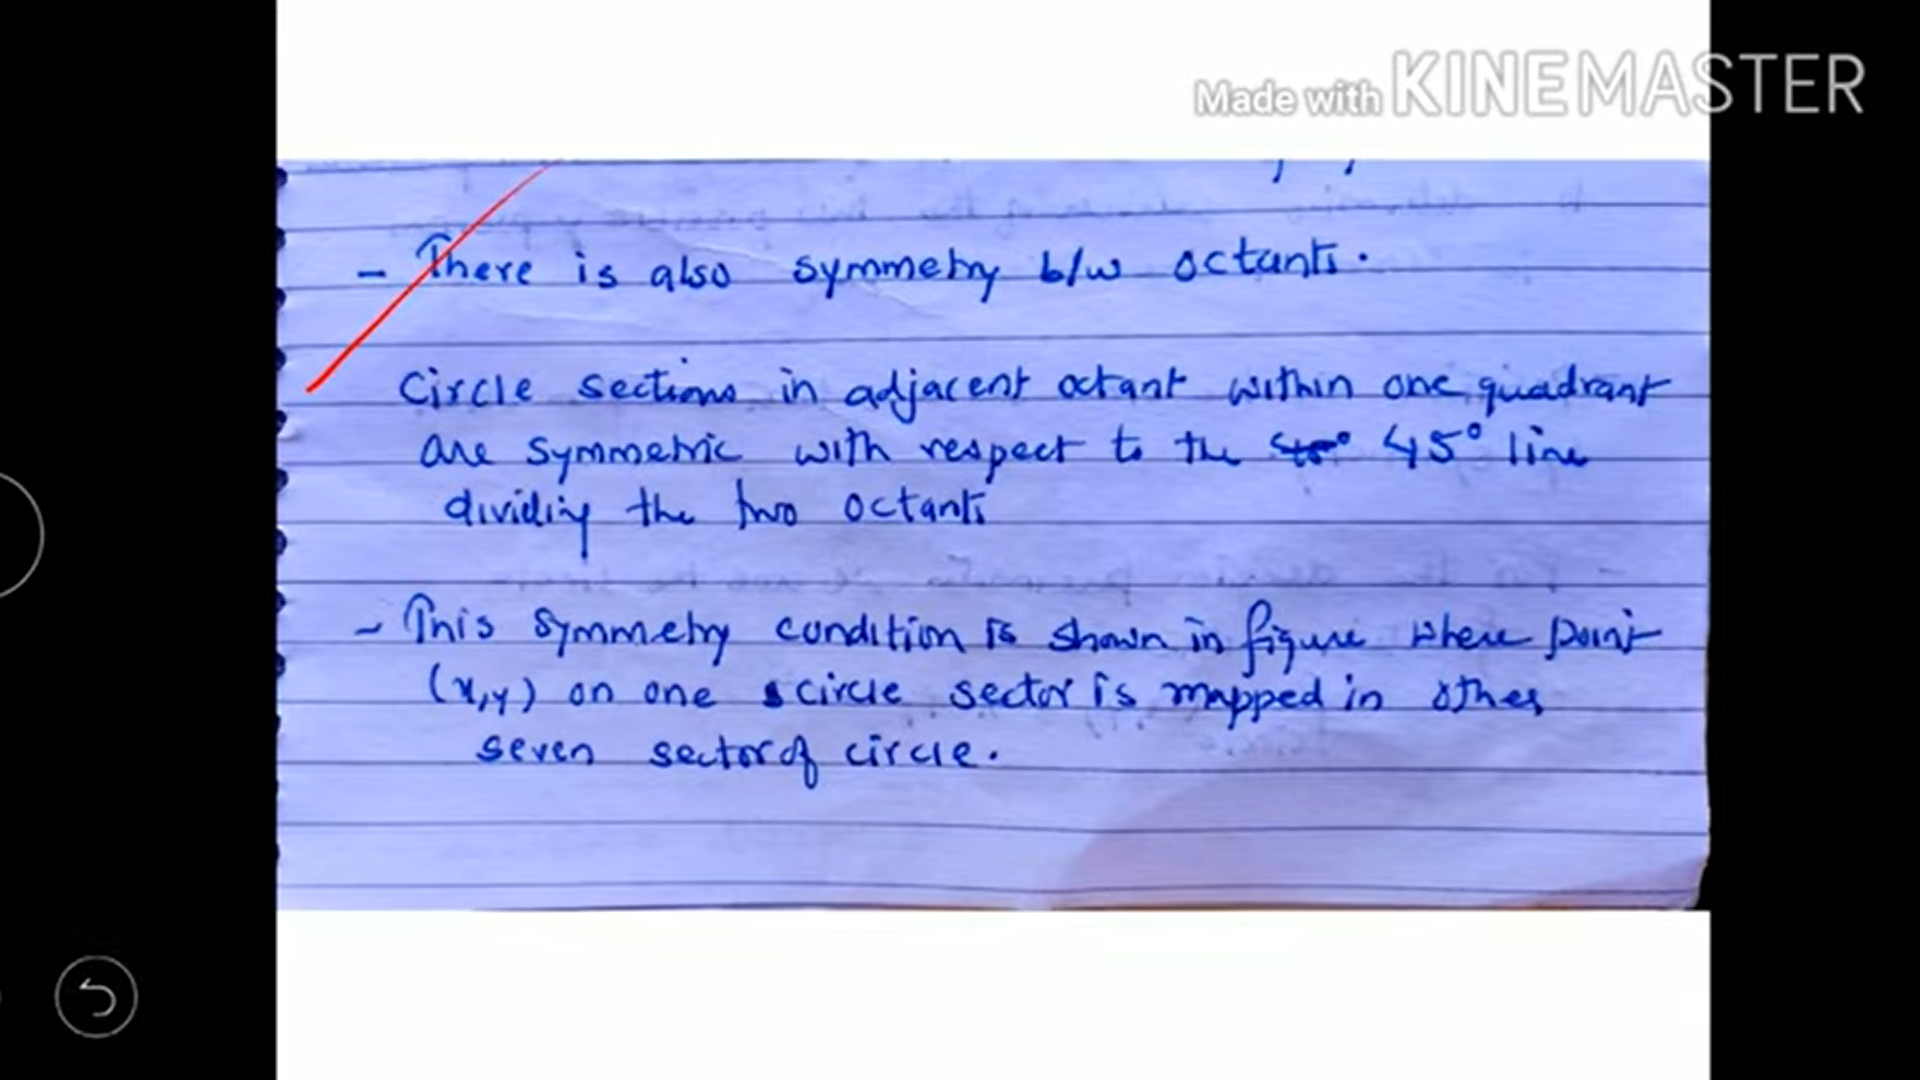 Made with KINEMASTER
- There is also symmetry b/w octants.
Circle sections in adjacent octant within one quadrant
are symmetric with respect to the 45° line
dividing the two octants
- This symmetry condition is shown in figure where point
(x,y) on one circle sector is mapped in other
seven sector of circle.